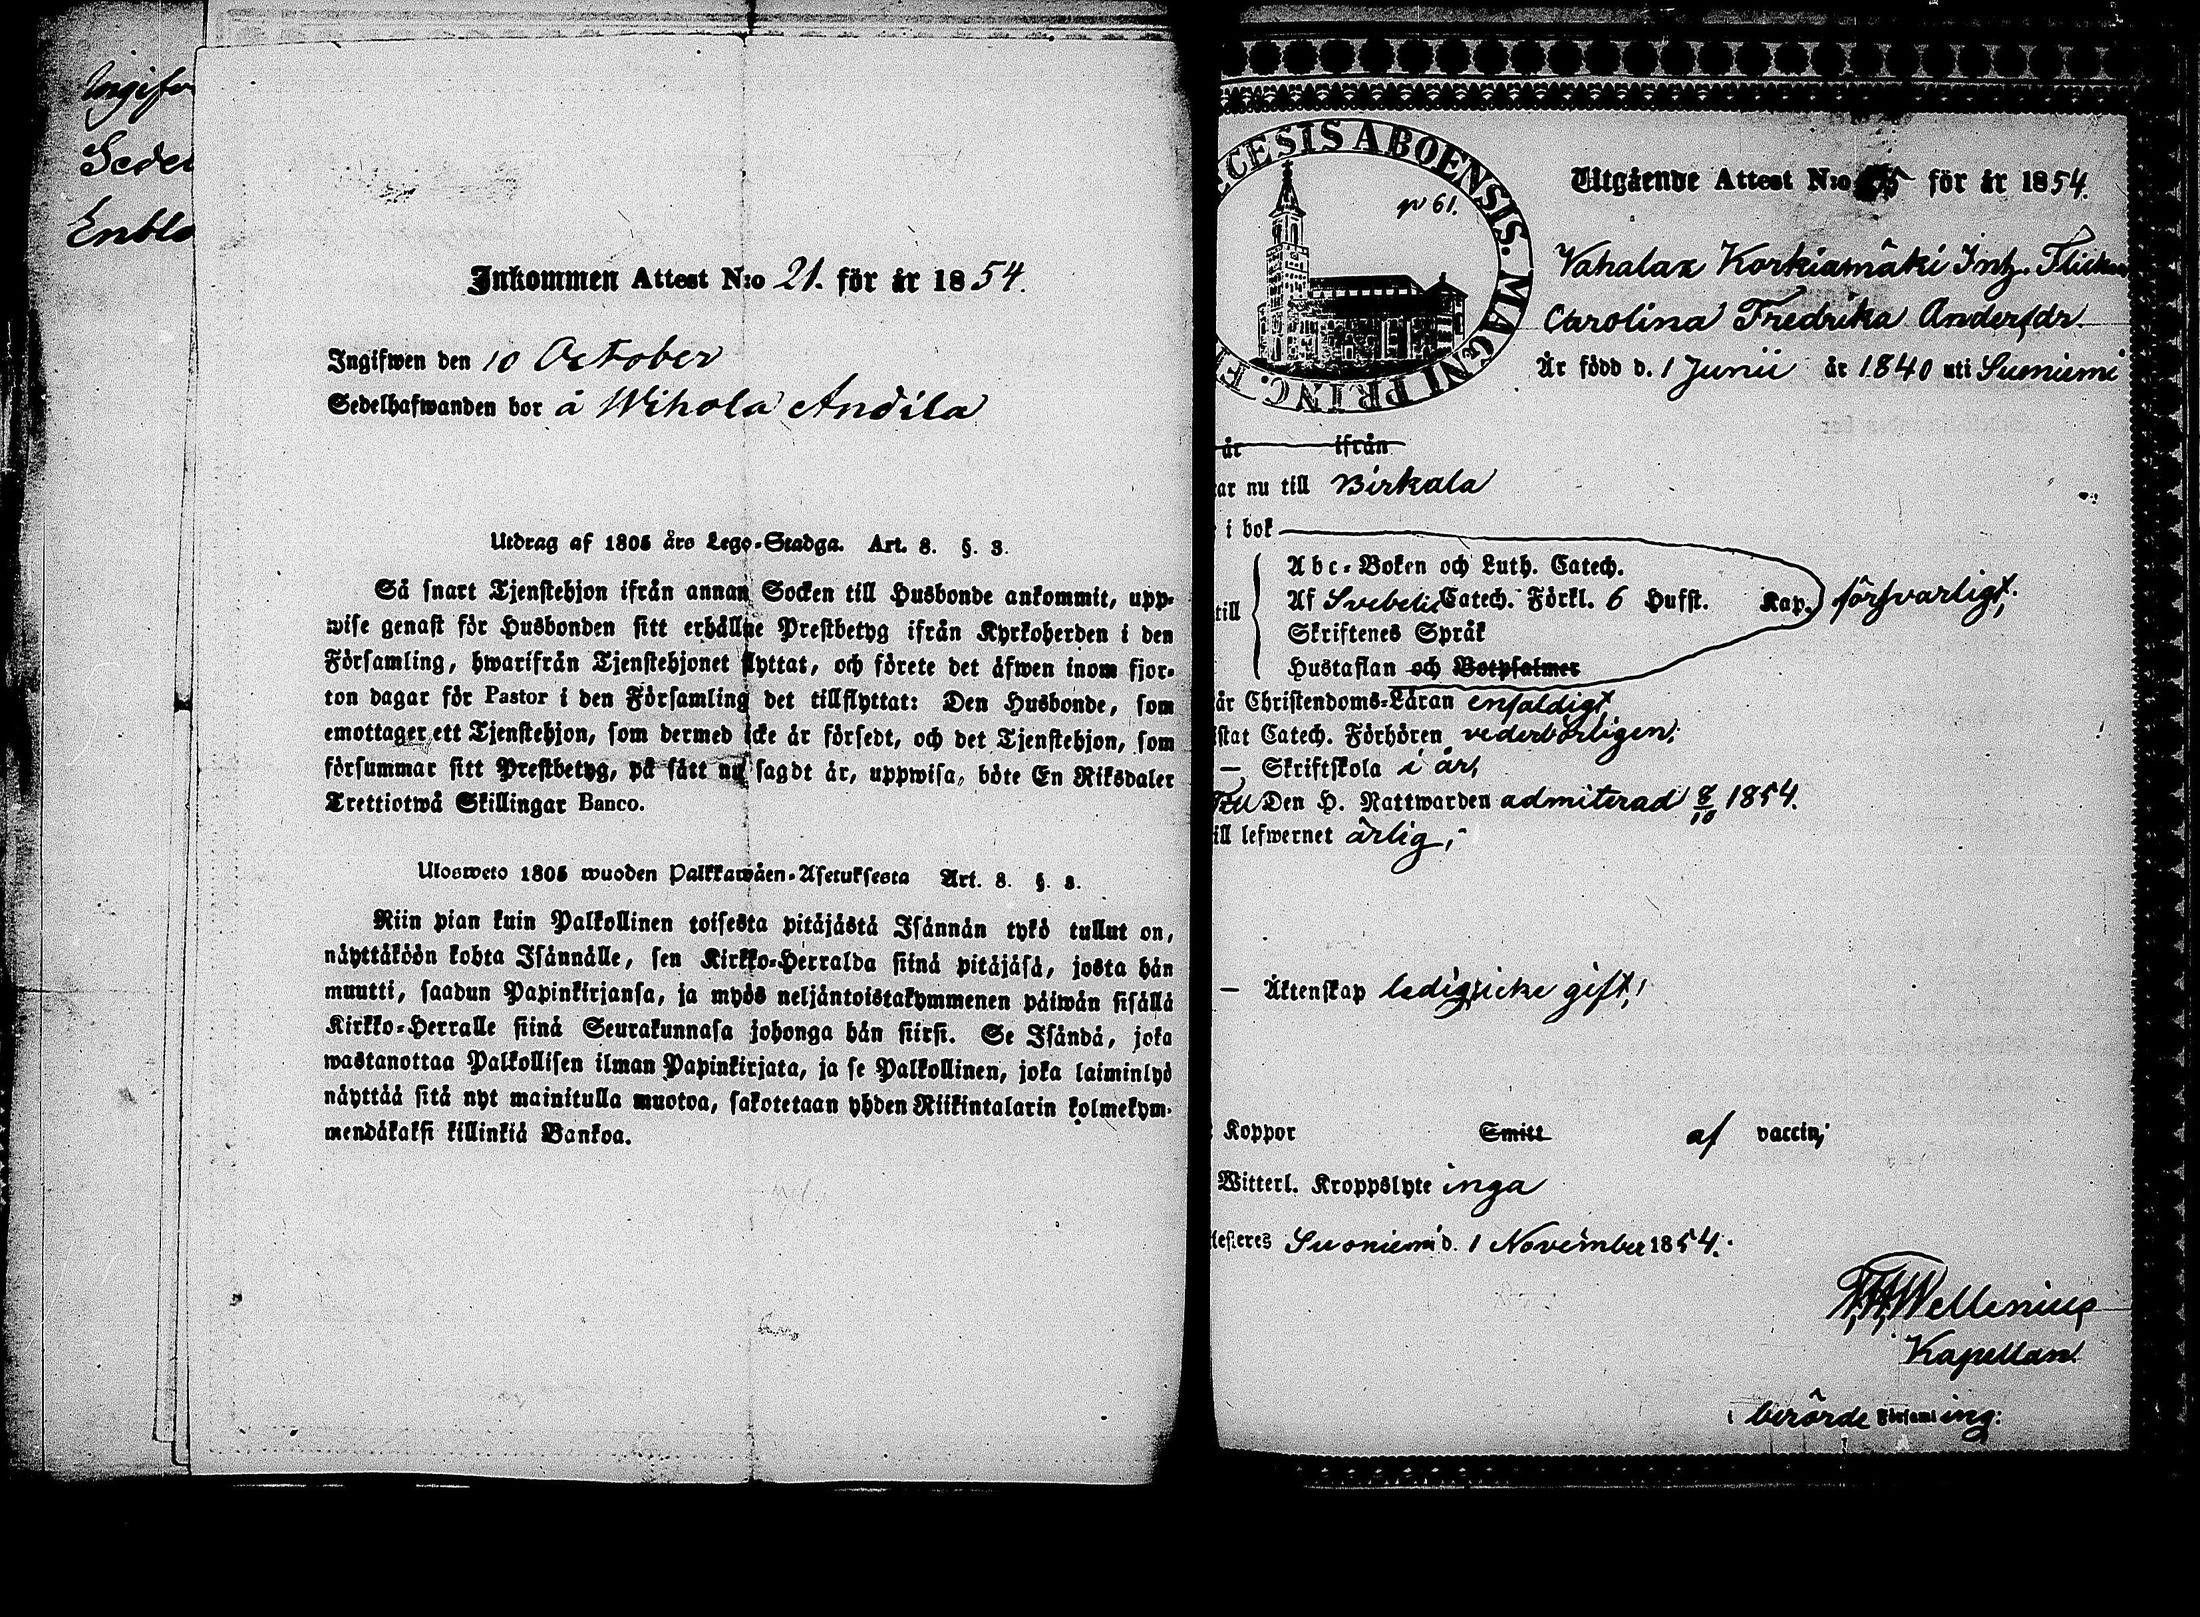 Ingifw
Sedel
Enblo
Inkommen Attest N:o 21. för år 1854.
Ingifwen den 10 October
Sedelhafwanden bor å Wihola Andila
Utdrag af 1805 års Lego-Stadga. Art. 8. §. 3.
Så snart Tjenstehjon ifrån annan Socken till Husbonde ankommit, upp-
wise genast för Husbonden sitt erhållne Prestbetyg ifrån Kyrkoherden i den
Församling, hwarifrån Tjenstehjonet flyttat, och förete det äfwen inom fjor-
ton dagar för Pastor i den Församling det tillflyttat: Den Husbonde, som
emottager ett Tjenstehjon, som dermed icke är försedt, och det Tjenstehjon, som
försummar sitt Prestbetyg, på sätt nu sagdt är, uppwisa, böte En Riksdaler
Trettiotwå Skillingar Banco.
Ulosweto 1805 wuoden Palkkawäen-Asetuksesta Art. 8. §. 3.
Niin pian kuin Palkollinen toisesta pitäjästä Isännän tykö tullut on,
näyttäköön kohta Isännälle, sen Kirkko-Herralda siinä pitäjäsä, josta hän
muutti, saadun Papinkirjansa, ja myös neljäntoistakymmenen päiwän sisällä
Kirkko-Herralle siinä Seurakunnasa johonga hän siirsi. Se Isändä, joka
wastanottaa Palkollisen ilman Papinkirjata, ja se Palkollinen, joka laiminlyö
näyttää sitä nyt mainitulla muotoa, sakotetaan yhden Riikintalarin kolmekym-
mendäkaksi killinkiä Bankoa.
ECESIS ABOENSIS. MAGNI PRINC. F
pv 61.
Utgående Attest N:o 5 för år 1854.
Vahalax Korkiamäki Inh. Flickan
Carolina Fredrika Andersdr.
Är född d. 1 Junii år 1840 uti Suoniemi
är ifrån
ar nu till Birkala
i bok
Abc-Boken och Luth. Catech.
till Af Svebelii Catech. Förkl. 6 Hufst. Kap. försvarligt;
Skriftenes Språk
Hustaflan och Botpsalmer
är Christendoms-Läran enfaldigt
istat Catech. Förhören vederbörligen;
— Skriftskola i år,
Till Den H. Nattwarden admiterad 8/10 1854.
ill lefwernet ärlig;
— Äktenskap ledig, icke gift;
Koppor Smitt af vaccin;
Witterl. Kroppslyte inga
testeres Suoniemi d. 1 November 1854.
Wellenius,
Kapellan
i berörde Församling: